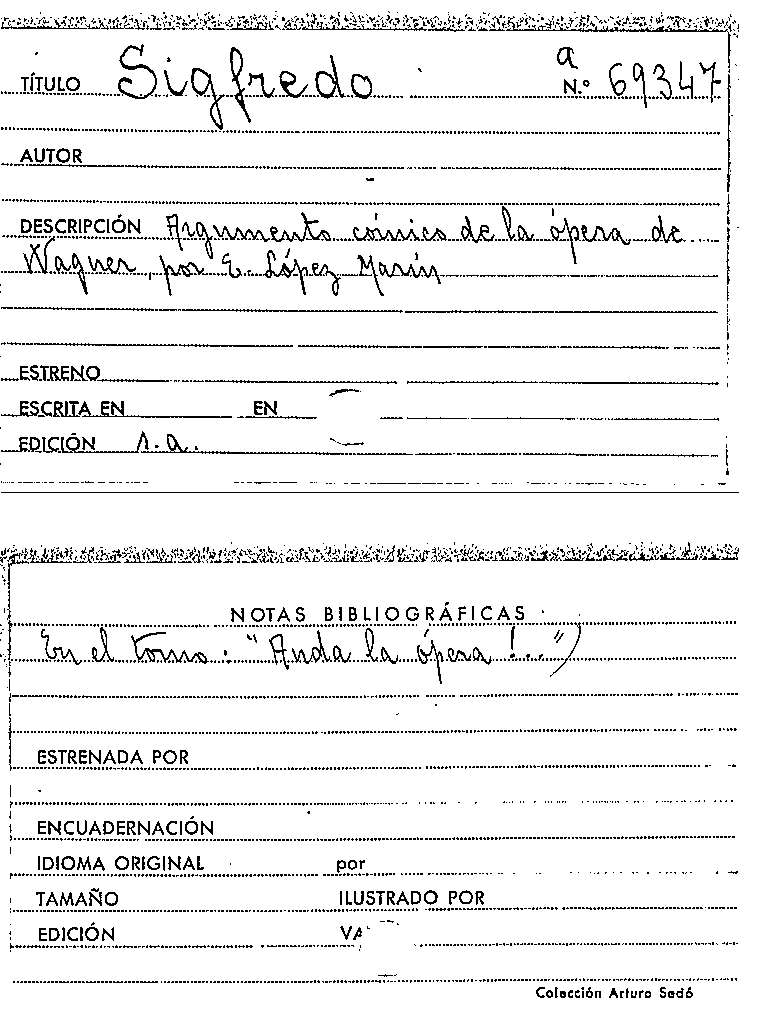 a
TÍTULO Sigfredo N.º 69347
AUTOR
DESCRIPCIÓN Argumento cómico de la ópera de
Wagner, por E. López Marín
ESTRENO
ESCRITA EN EN
EDICIÓN s.a.
NOTAS BIBLIOGRÁFICAS
En el tomo: "Anda la ópera!..")
ESTRENADA POR
ENCUADERNACIÓN
IDIOMA ORIGINAL por
TAMAÑO ILUSTRADO POR
EDICIÓN VA
Colección Arturo Sedó